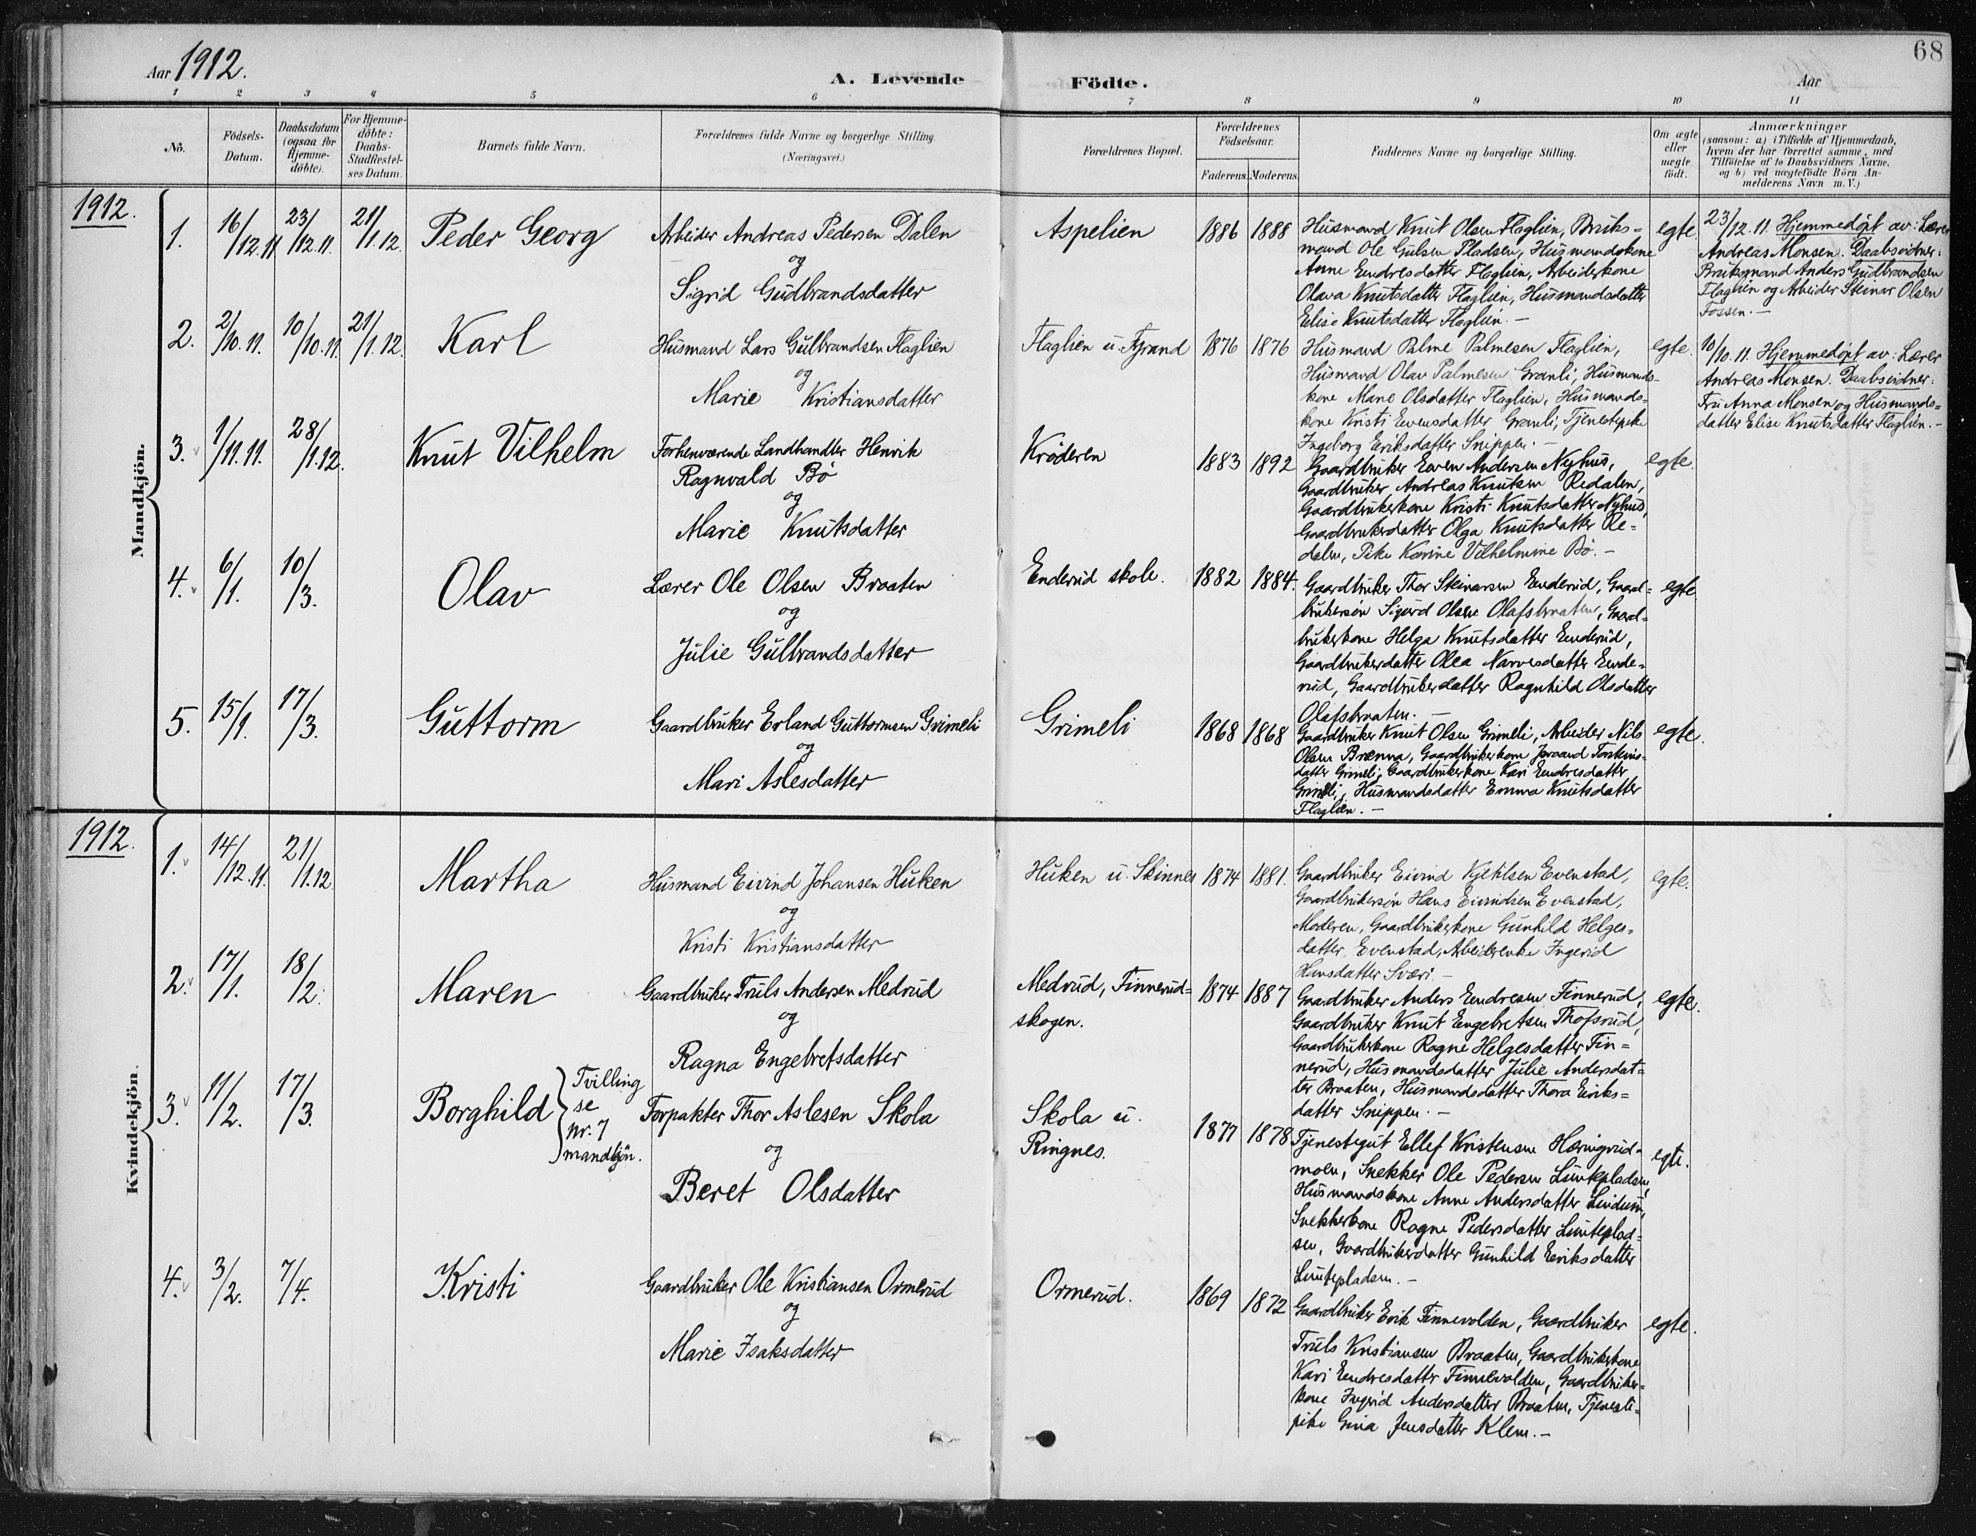 68
Aar 1912.
A. Levende
Födte.
Aar
1 2 3 4 5 6 7 8 9 10 11
No.
Födsels-
Datum.
Daabsdatum
(ogsaa for
Hjemme-
döbte).
For Hjemme-
döbte:
Daabs-
Stadfæstel-
ses Datum.
Barnets fulde Navn.
Forældrenes fulde Navne og borgerlige Stilling
(Næringsvei.)
Forældrenes Bopæl.
Forældrenes
Födselsaar.
Faderens. Moderens.
Faddernes Navne og borgerlige Stilling.
Om ægte
eller
uægte
födt.
Anmærkninger
(saasom: a) i Tilfælde af Hjemmedaab,
hvem der har forrettet samme, med
Tilföielse af to Daabsvidners Navne,
og b) ved uægtefödte Börn An-
melderens Navn m. V.)
1912.
Mandkjön.
1. 16/12.11 23/12.11. 21/1.12. Peder Georg
Arbeider Andreas Pedersen Dalen
og
Sigrid Gudbrandsdatter
Aspelien 1886 1888
Husmand Knut Olsen Flaglien, Bruks-
mand Ole Gulsen Pladsen, Husmandskone
Anne Endresdatter Flaglien, Arbeiderkone
Olava Knutsdatter Flaglien, Husmandsdatter
Elise Knutsdatter Flaglien. —
egte
23/12.11. Hjemmedöpt av: Lærer
Andreas Monsen. Daabsvidner:
Bruksmand Anders Gudbrandsen
Flaglien og Arbeider Steinar Olsen
Fossen. —
2. 2/10.11. 10/10.11. 21/1.12. Karl
Husmand Lars Gulbrandsen Flaglien
og
Marie Kristiansdatter
Flaglien u. Fyrand 1876 1876
Husmand Palme Palmesen Flaglien,
Husmand Olav Palmesen Granli, Husmands-
kone Marie Olsdatter Flaglien, Husmands-
kone Kristi Evensdatter Granli, Tjenestepike
Ingeborg Eriksdatter Snippen. —
egte.
10/10.11. Hjemmedöpt av: Lærer
Andreas Monsen. Daabsvidner:
Fru Anna Monsen og Husmands-
datter Elise Knutsdatter Flaglien. —
3. 1/11.11. 28/1.12. Knut Vilhelm
Forhenværende Landhandler Henrik
Ragnvald Bø
og
Marie Knutsdatter
Krøderen 1883 1892
Gaardbruker Even Andersen Nyhus,
Gaardbruker Andreas Knutsen Redalen,
Gaardbrukerkone Kristi Knutsdatter Nyhus,
Gaardbrukerdatter Olga Knutsdatter Re-
dalen, Pike Karine Vilhelmine Bø. —
egte.
4. 6/1. 10/3. Olav
Lærer Ole Olsen Braaten
og
Julie Gulbrandsdatter
Enderud skole. 1882 1884.
Gaardbruker Thor Steinarsen Enderud, Gaard-
brukersøn Sigurd Olsen Olafsbraaten, Gaard-
brukerkone Helga Knutsdatter Enderud,
Gaardbrukerdatter Olea Narvesdatter Ende-
rud, Gaardbrukerdatter Ragnhild Olsdatter
Olafsbraaten. —
egte
5. 15/1. 17/3. Guttorm
Gaardbruker Erland Guttormsen Grimeli
og
Mari Aslesdatter
Grimeli 1868 1868
Gaardbruker Knut Olsen Grimeli, Arbeider Nils
Olsen Brenna, Gaardbrukerkone Joraand Torsteins-
datter Grimeli, Gaardbrukerkone Kari Endresdatter
Grimeli, Husmandsdatter Emma Knutsdatter
Flaglien. —
egte.
1912.
Kvindekjön.
1. 14/12.11. 21/1.12 Martha
Husmand Eivind Johansen Huken
og
Kristi Kristiansdatter
Huken u. Skinnes 1874 1881.
Gaardbruker Eivind Kjetilsen Evenstad,
Gaardbrukersøn Hans Eivindsen Evenstad,
Moderen, Gaardbrukerkone Gunhild Helges-
datter Evenstad, Arbeiderenke Ingerid
Hansdatter Sværi —
egte.
2. 17/1. 18/2. Maren
Gaardbruker Truls Andersen Medrud
og
Ragna Engebretsdatter
Medrud, Finnerud-
skogen. 1874 1887
Gaardbruker Anders Endresen Finnerud,
Gaardbruker Knut Engebretsen Thofsrud,
Gaardbrukerkone Ragne Helgesdatter Fin-
nerud, Husmandsdatter Julie Andersdat-
ter Braaten, Husmandsdatter Thora Eriks-
datter Snippen. —
egte.
3. 11/2. 17/3. Borghild
Tvilling
se
nr. 7
mandkjön.
Forpakter Thor Aslesen Skola
og
Beret Olsdatter
Skola u.
Ringnes. 1877 1878
Tjenestegut Ellef Kristensen Hæringrud-
moen, Snekker Ole Pedersen Luntepladsen,
Husmandskone Anne Andersdatter Lindeim,
Snekkerkone Ragne Pedersdatter Luntepلاد-
sen, Gaardbrukerdatter Gunhild Eriksdatter
Luntepladsen. —
egte.
4. 3/2. 7/4. Kristi
Gaardbruker Ole Kristiansen Ormerud
og
Marie Isaksdatter
Ormerud. 1869 1872
Gaardbruker Erik Finnevolden, Gaardbruker
Truls Kristiansen Braaten, Gaardbrukerkone
Kari Endresdatter Finnevolden, Gaardbruker-
kone Ingrid Andersdatter Braaten, Tjeneste-
pike Gina Jensdatter Klem. —
egte.